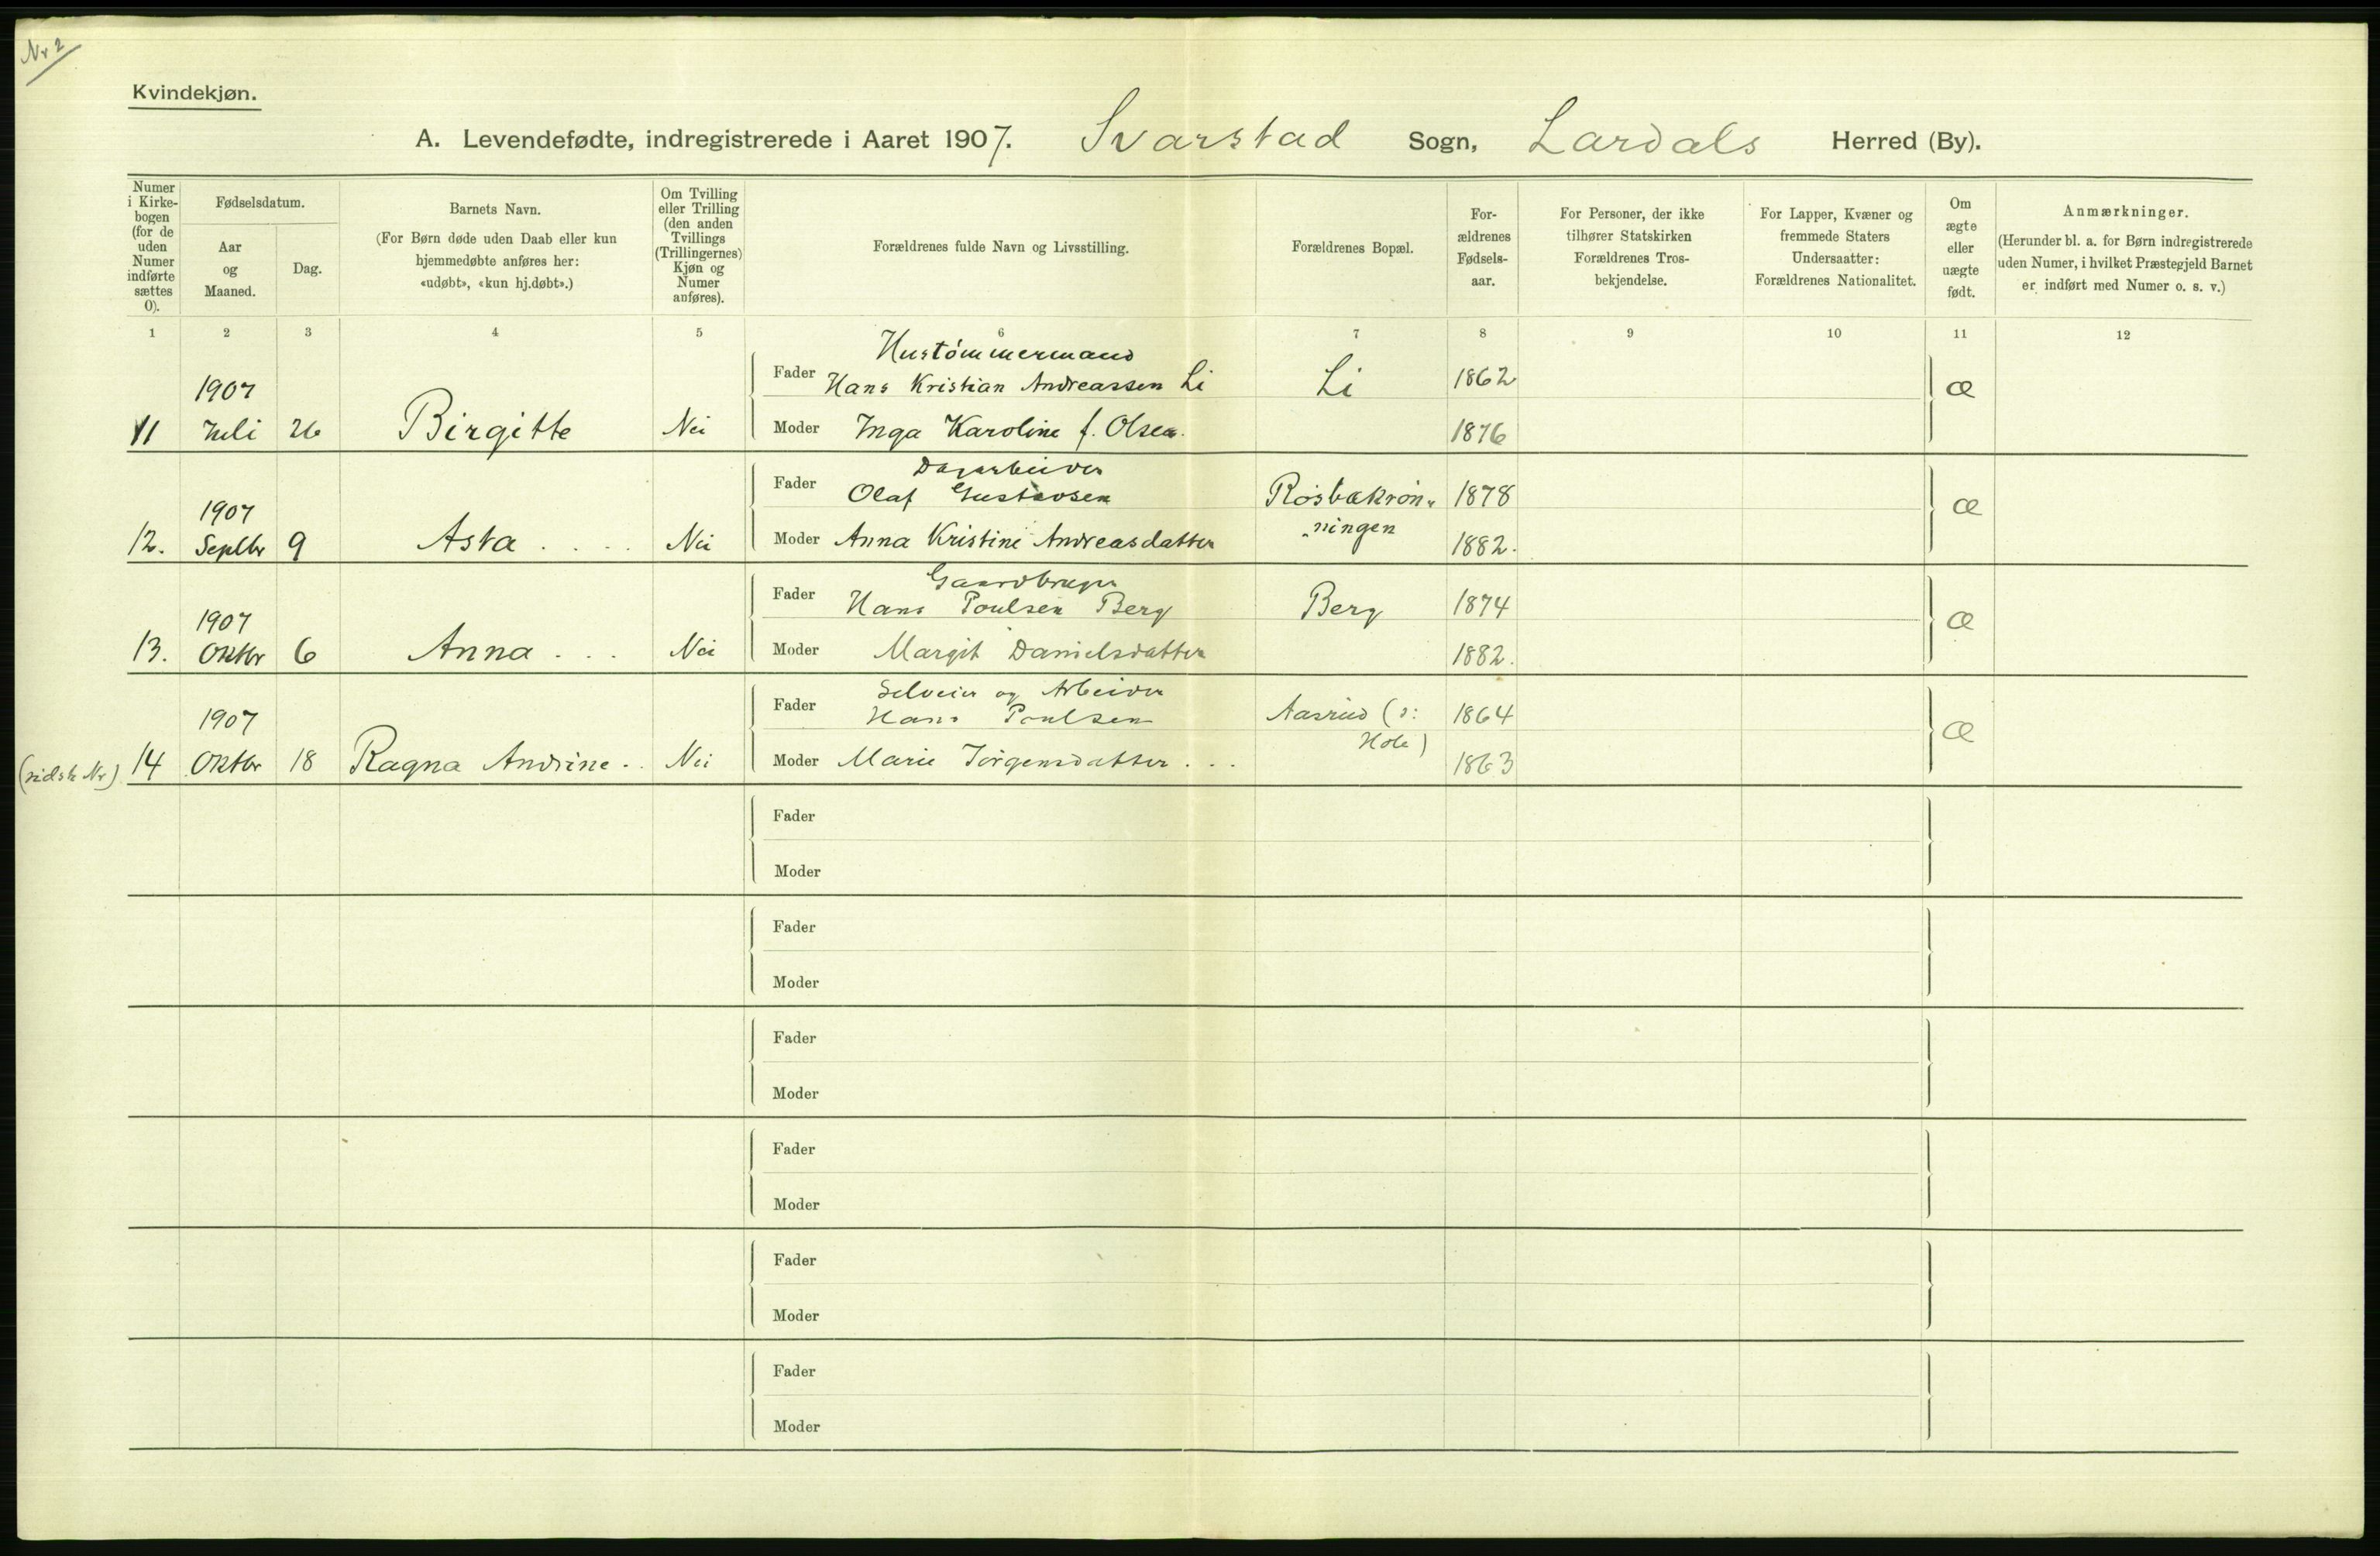 Nr 2
Kvindekjøn.
A. Levendefødte, indregistrerede i Aaret 1907. Svarstad Sogn, Lardals Herred (By).
Numer i Kirkebogen (for de uden Numer indførte sættes 0).
Fødselsdatum.
Aar og Maaned.
Dag.
Barnets Navn.
(For Børn døde uden Daab eller kun hjemmedøbte anføres her: «udøbt», «kun hj.døbt».)
Om Tvilling eller Trilling (den anden Tvillings (Trillingernes) Kjøn og Numer anføres).
Forældrenes fulde Navn og Livsstilling.
Forældrenes Bopæl.
Forældrenes Fødselsaar.
For Personer, der ikke tilhører Statskirken Forældrenes Trosbekjendelse.
For Lapper, Kvæner og fremmede Staters Undersaatter: Forældrenes Nationalitet.
Om ægte eller uægte født.
Anmærkninger.
(Herunder bl. a. for Børn indregistrerede uden Numer, i hvilket Præstegjeld Barnet er indført med Numer o. s. v.)
1 2 3 4 5 6 7 8 9 10 11 12
Hustømmermand
1907 Fader Hans Kristian Andreassen Li Li 1862 Æ
11 Juli 26 Birgitte Nei Moder Inga Karoline f. Olsen. 1876
Dagarbeider
1907 Fader Olaf Gustavsen Rosbækrøn- 1878 Æ
ningen
12. Septbr 9 Asta . . . . Nei Moder Anna Kristine Andreasdatter 1882.
Gaardbruger
1907 Fader Hans Poulsen Berg Berg 1874 Æ
13. Oktbr 6 Anna . . . Nei Moder Margit Danielsdatter 1882.
Selveier og Arbeider
1907 Fader Hans Poulsen Aasrud (ɔ: 1864 Æ
Hole)
(sidste Nr) 14 Oktbr 18 Ragna Andrine . . Nei Moder Marie Jørgensdatter . . . 1863
Fader
Moder
Fader
Moder
Fader
Moder
Fader
Moder
Fader
Moder
Fader
Moder